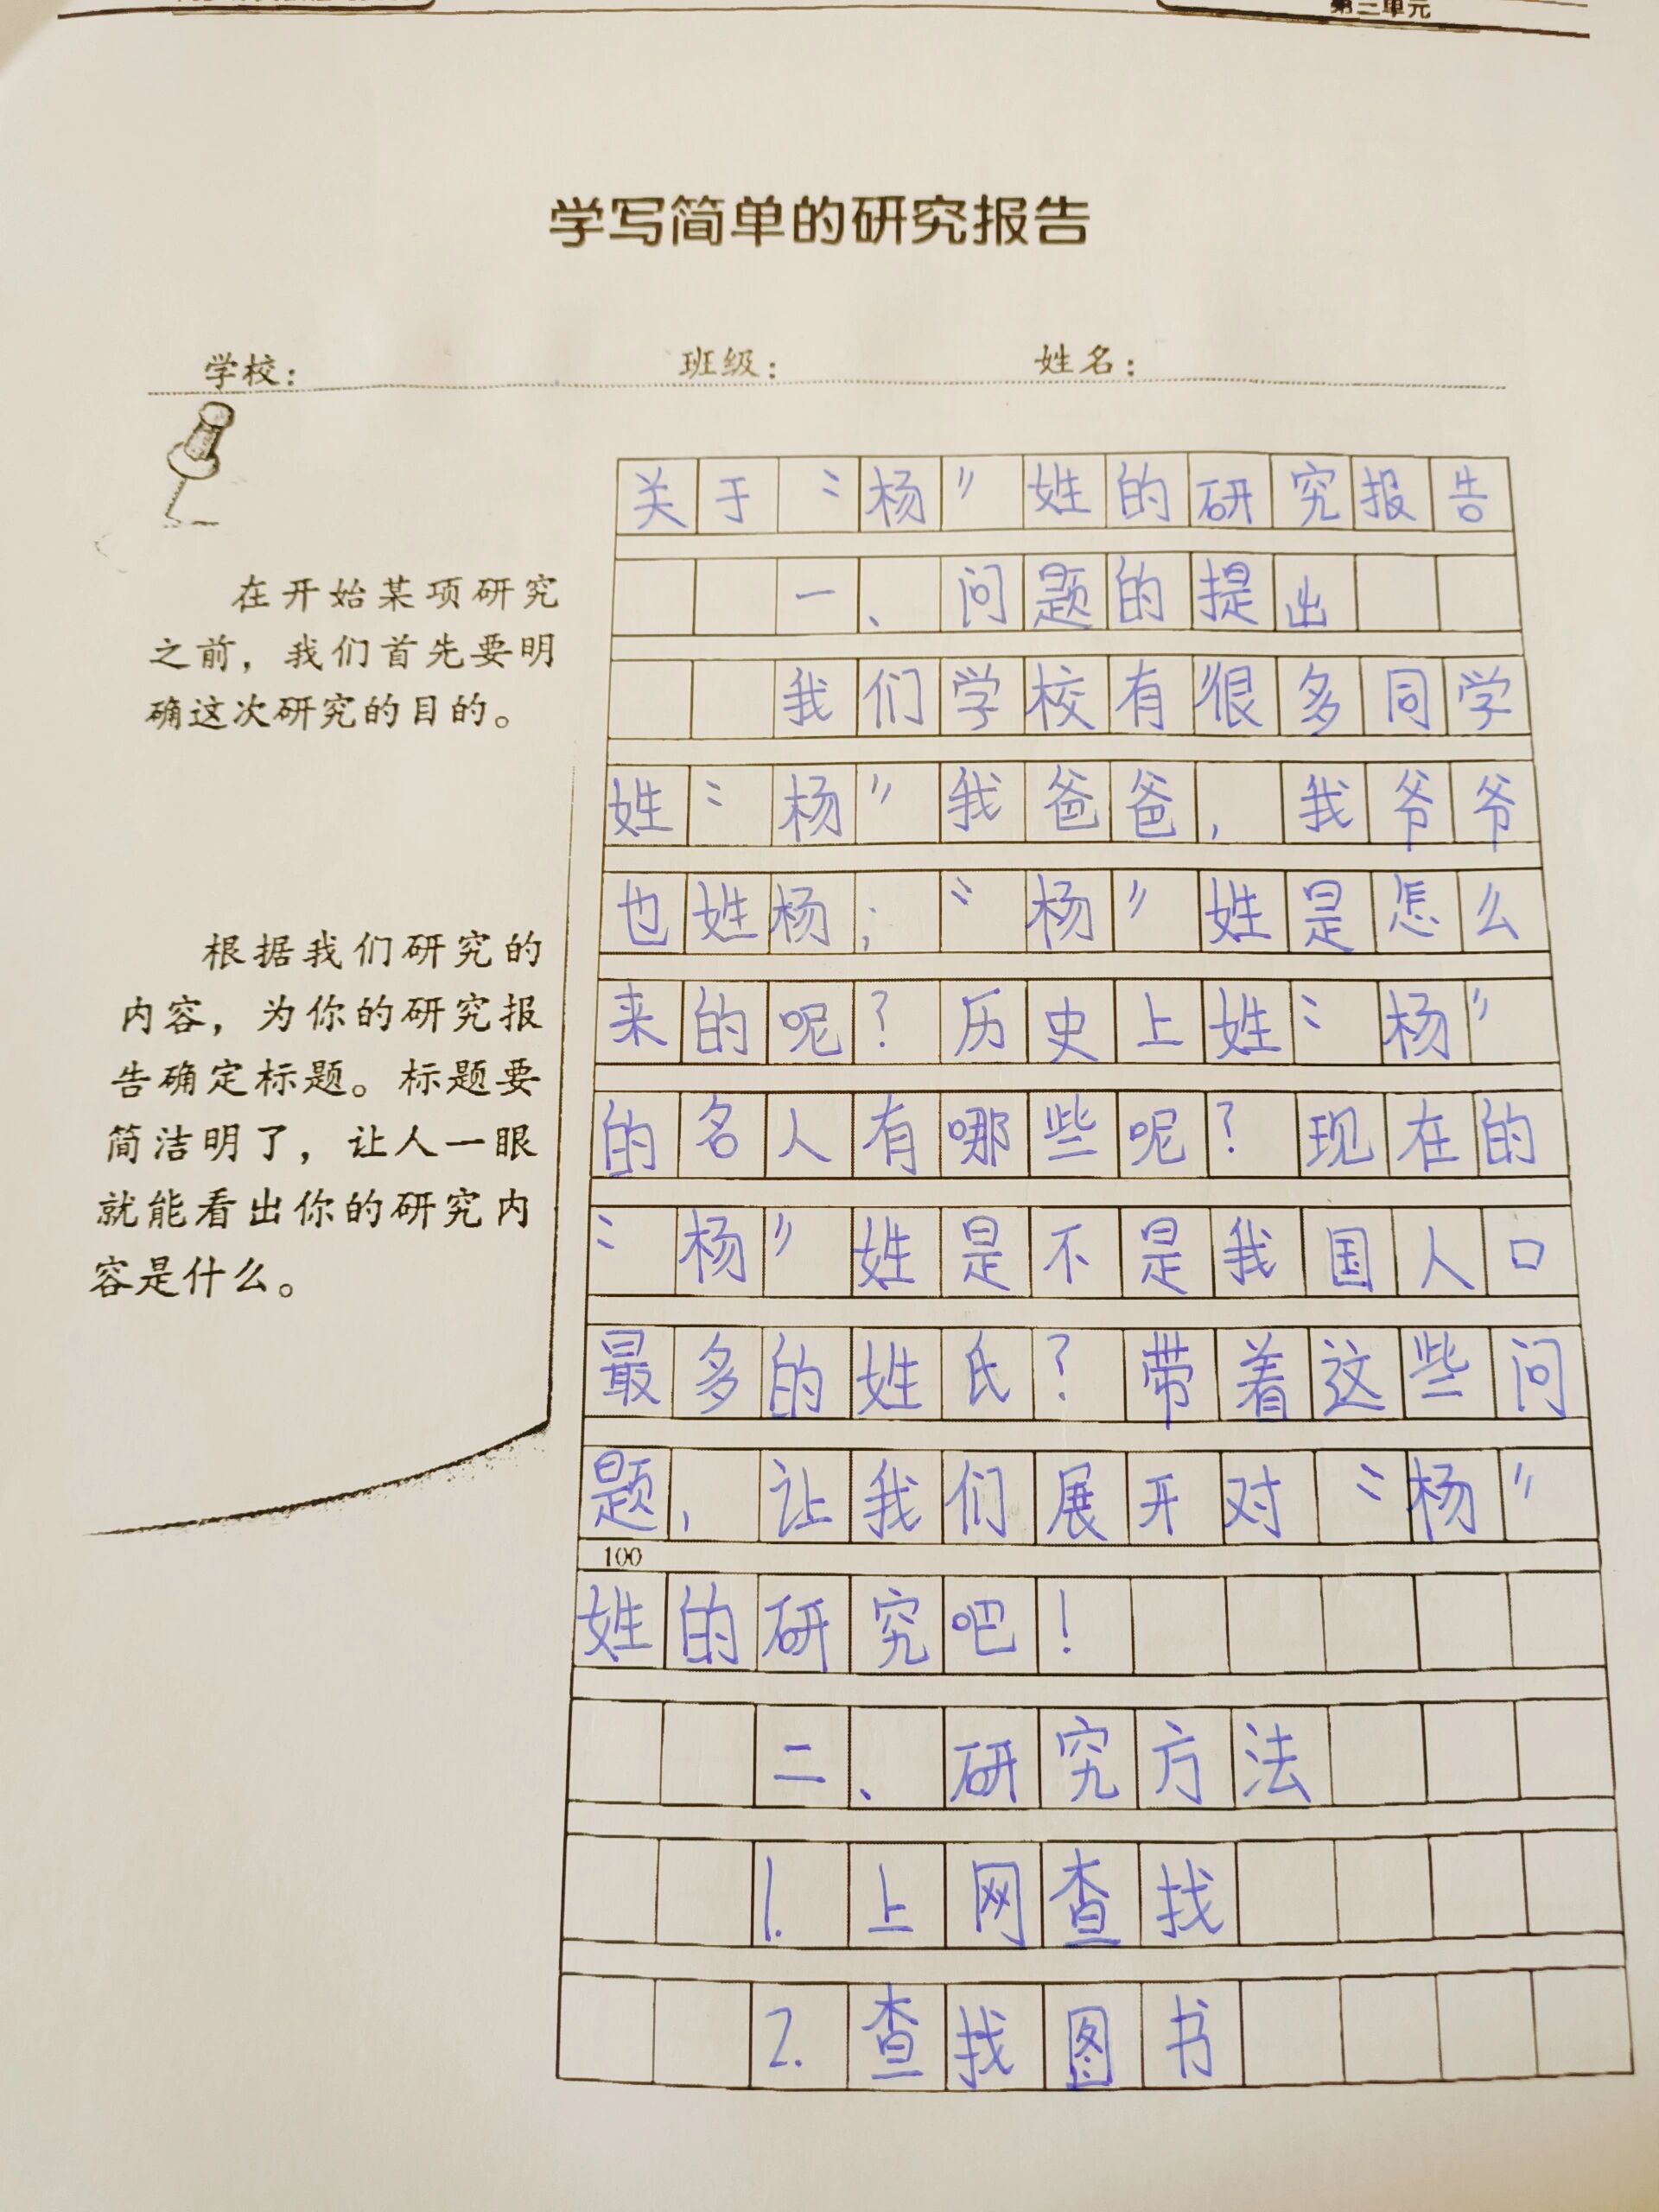 第三单元
学写简单的研究报告
学校： 班级： 姓名：
在开始某项研究
之前，我们首先要明
确这次研究的目的。
根据我们研究的
内容，为你的研究报
告确定标题。标题要
简洁明了，让人一眼
就能看出你的研究内
容是什么。
关于“杨”姓的研究报告
一、问题的提出
我们学校有很多同学
姓“杨”我爸爸，我爷爷
也姓杨；“杨”姓是怎么
来的呢？历史上姓“杨”
的名人有哪些呢？现在的
“杨”姓是不是我国人口
最多的姓氏？带着这些问
题，让我们展开对“杨”
100
姓的研究吧！
二、研究方法
1.上网查找
2.查找图书